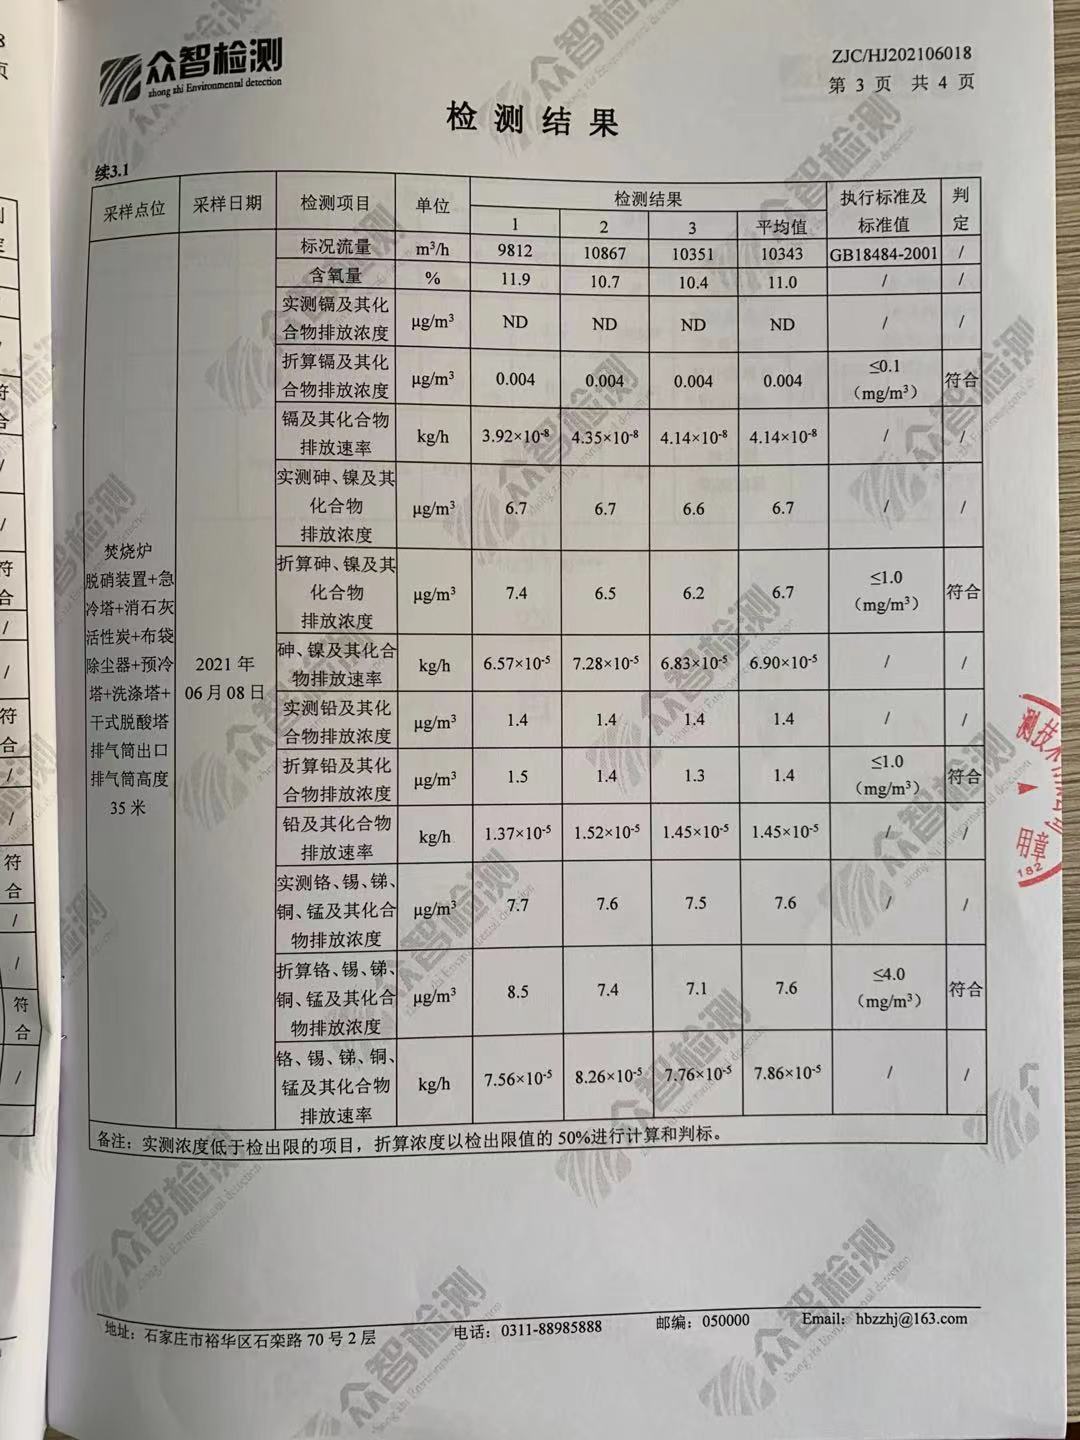 众智检测
zhong zhi Environmental detection
ZJC/HJ202106018
第 3 页 共 4 页
检 测 结 果
续3.1
采样点位 采样日期 检测项目 单位 检测结果 执行标准及标准值 判定
1 2 3 平均值
标况流量 m³/h 9812 10867 10351 10343 GB18484-2001 /
含氧量 % 11.9 10.7 10.4 11.0 / /
实测镉及其化合物排放浓度 μg/m³ ND ND ND ND / /
折算镉及其化合物排放浓度 μg/m³ 0.004 0.004 0.004 0.004 ≤0.1（mg/m³） 符合
镉及其化合物排放速率 kg/h 3.92×10⁻⁸ 4.35×10⁻⁸ 4.14×10⁻⁸ 4.14×10⁻⁸ / /
实测砷、镍及其化合物排放浓度 μg/m³ 6.7 6.7 6.6 6.7 / /
折算砷、镍及其化合物排放浓度 μg/m³ 7.4 6.5 6.2 6.7 ≤1.0（mg/m³） 符合
砷、镍及其化合物排放速率 kg/h 6.57×10⁻⁵ 7.28×10⁻⁵ 6.83×10⁻⁵ 6.90×10⁻⁵ / /
实测铅及其化合物排放浓度 μg/m³ 1.4 1.4 1.4 1.4 / /
折算铅及其化合物排放浓度 μg/m³ 1.5 1.4 1.3 1.4 ≤1.0（mg/m³） 符合
铅及其化合物排放速率 kg/h 1.37×10⁻⁵ 1.52×10⁻⁵ 1.45×10⁻⁵ 1.45×10⁻⁵ / /
实测铬、锡、锑、铜、锰及其化合物排放浓度 μg/m³ 7.7 7.6 7.5 7.6 / /
折算铬、锡、锑、铜、锰及其化合物排放浓度 μg/m³ 8.5 7.4 7.1 7.6 ≤4.0（mg/m³） 符合
铬、锡、锑、铜、锰及其化合物排放速率 kg/h 7.56×10⁻⁵ 8.26×10⁻⁵ 7.76×10⁻⁵ 7.86×10⁻⁵ / /
焚烧炉
脱硝装置+急
冷塔+消石灰
活性炭+布袋
除尘器+预冷
塔+洗涤塔+
干式脱酸塔
排气筒出口
排气筒高度
35 米
2021 年
06 月 08 日
备注：实测浓度低于检出限的项目，折算浓度以检出限值的 50%进行计算和判标。
测技术
用章
182
地址：石家庄市裕华区石栾路 70 号 2 层 电话：0311-88985888 邮编：050000 Email：hbzzhj@163.com